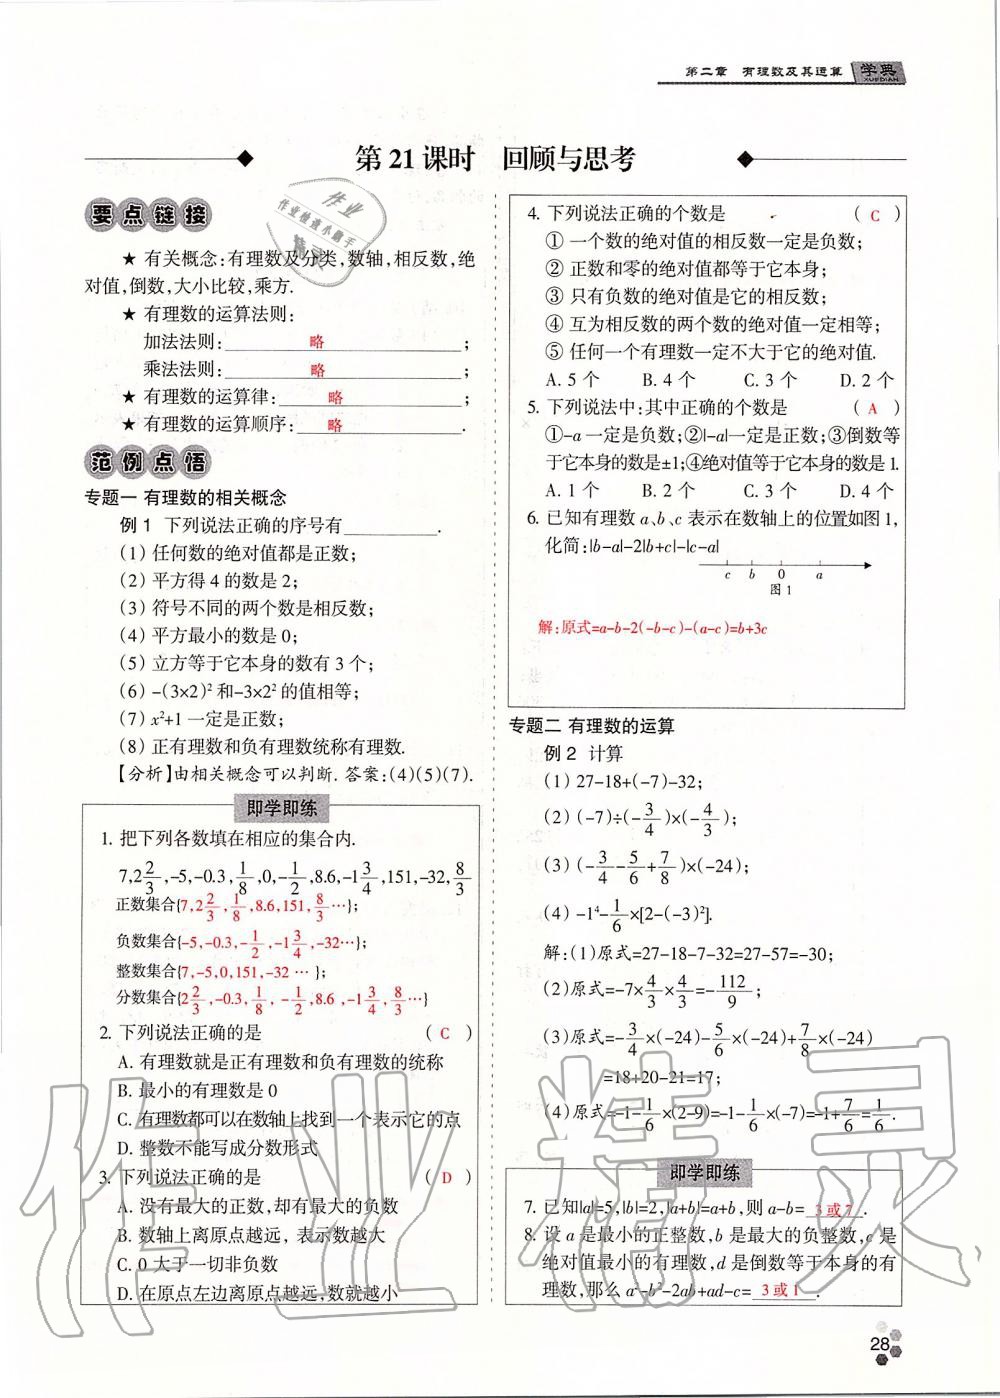 第二章 有理数及其运算 学典
XUEDIAN
第21课时 回顾与思考
要点链接
★ 有关概念:有理数及分类,数轴,相反数,绝
对值,倒数,大小比较,乘方.
★ 有理数的运算法则:
加法法则: 略 ;
乘法法则: 略 ;
★ 有理数的运算律: 略 ;
★ 有理数的运算顺序: 略 .
范例点悟
专题一 有理数的相关概念
例1 下列说法正确的序号有________.
(1) 任何数的绝对值都是正数;
(2) 平方得4的数是2;
(3) 符号不同的两个数是相反数;
(4) 平方最小的数是0;
(5) 立方等于它本身的数有3个;
(6) -(3×2)²和-3×2²的值相等;
(7) x²+1一定是正数;
(8) 正有理数和负有理数统称有理数.
【分析】由相关概念可以判断. 答案:(4)(5)(7).
即学即练
1. 把下列各数填在相应的集合内.
7,2 2/3,-5,-0.3,1/8,0,-1/2,8.6,-1 3/4,151,-32,8/3
正数集合{7,2 2/3,1/8,8.6,151,8/3…};
负数集合{-5,-0.3,-1/2,-1 3/4,-32…};
整数集合{7,-5,0,151,-32 …};
分数集合{2 2/3,-0.3,1/8,-1/2,8.6,-1 3/4,8/3…}
2. 下列说法正确的是 ( C )
A. 有理数就是正有理数和负有理数的统称
B. 最小的有理数是0
C. 有理数都可以在数轴上找到一个表示它的点
D. 整数不能写成分数形式
3. 下列说法正确的是 ( D )
A. 没有最大的正数,却有最大的负数
B. 数轴上离原点越远,表示数越大
C. 0大于一切非负数
D. 在原点左边离原点越远,数就越小
4. 下列说法正确的个数是 ( C )
① 一个数的绝对值的相反数一定是负数;
② 正数和零的绝对值都等于它本身;
③ 只有负数的绝对值是它的相反数;
④ 互为相反数的两个数的绝对值一定相等;
⑤ 任何一个有理数一定不大于它的绝对值.
A. 5个 B. 4个 C. 3个 D. 2个
5. 下列说法中:其中正确的个数是 ( A )
①-a一定是负数;②|-a|一定是正数;③倒数等
于它本身的数是±1;④绝对值等于它本身的数是1.
A. 1个 B. 2个 C. 3个 D. 4个
6. 已知有理数a、b、c表示在数轴上的位置如图1,
化简:|b-a|-2|b+c|-|c-a|
c b 0 a
图1
解:原式=a-b-2(-b-c)-(a-c)=b+3c
专题二 有理数的运算
例2 计算
(1) 27-18+(-7)-32;
(2) (-7)÷(-3/4)×(-4/3);
(3) (-3/4-5/6+7/8)×(-24);
(4) -1⁴-1/6×[2-(-3)²].
解:(1)原式=27-18-7-32=27-57=-30;
(2)原式=-7×4/3×4/3=-112/9;
(3)原式=-3/4×(-24)-5/6×(-24)+7/8×(-24)
=18+20-21=17;
(4)原式=-1-1/6×(2-9)=-1-1/6×(-7)=-1+7/6=1/6.
即学即练
7. 已知|a|=5,|b|=2,|a+b|=a+b,则a-b= 3或7 .
8. 设a是最小的正整数,b是最大的负整数,c是
绝对值最小的有理数,d是倒数等于本身的有
理数,那么a²-b²-2ab+ad-c= 3或1 .
28
作业
作业检查小助手
作业精灵